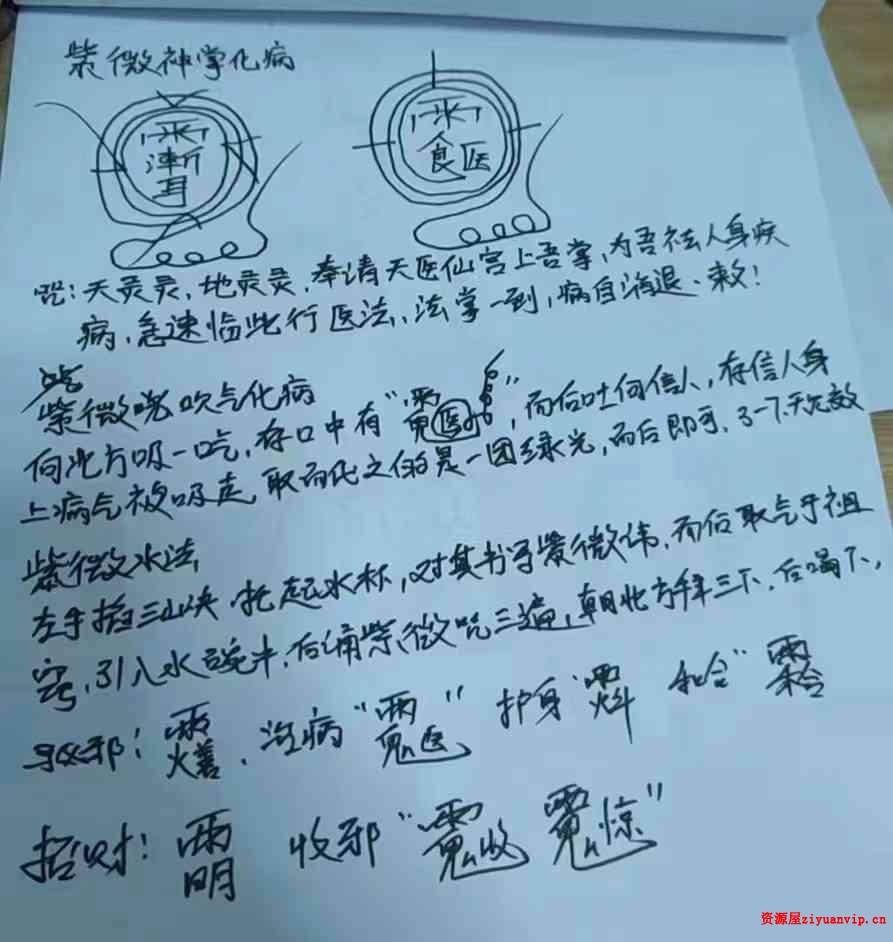 紫微神掌化病
雨 渐耳
雨 食医
咒:天灵灵,地灵灵,奉请天医仙宫上吾掌,为吾祛人身疾
病,急速临此行医法,法掌一到,病自消退、敕!
紫微咒吹气化病
向北方吸一口气,存口中有“ ”,而后吐向信人,存信人身
上病气被吸走,取而代之的是一团绿光,而后即可,3-7天见效
紫微水法
左手掐三山诀,托起水杯,对其书写紫微讳,而后取气于祖
窍,引入水碗中,后诵紫微咒三遍,朝北方拜三下,后喝下,
驱邪: 、治病“ ” 护身“ 和合”
招财: 收邪“ ”
资源屋ziyuanvip.cn